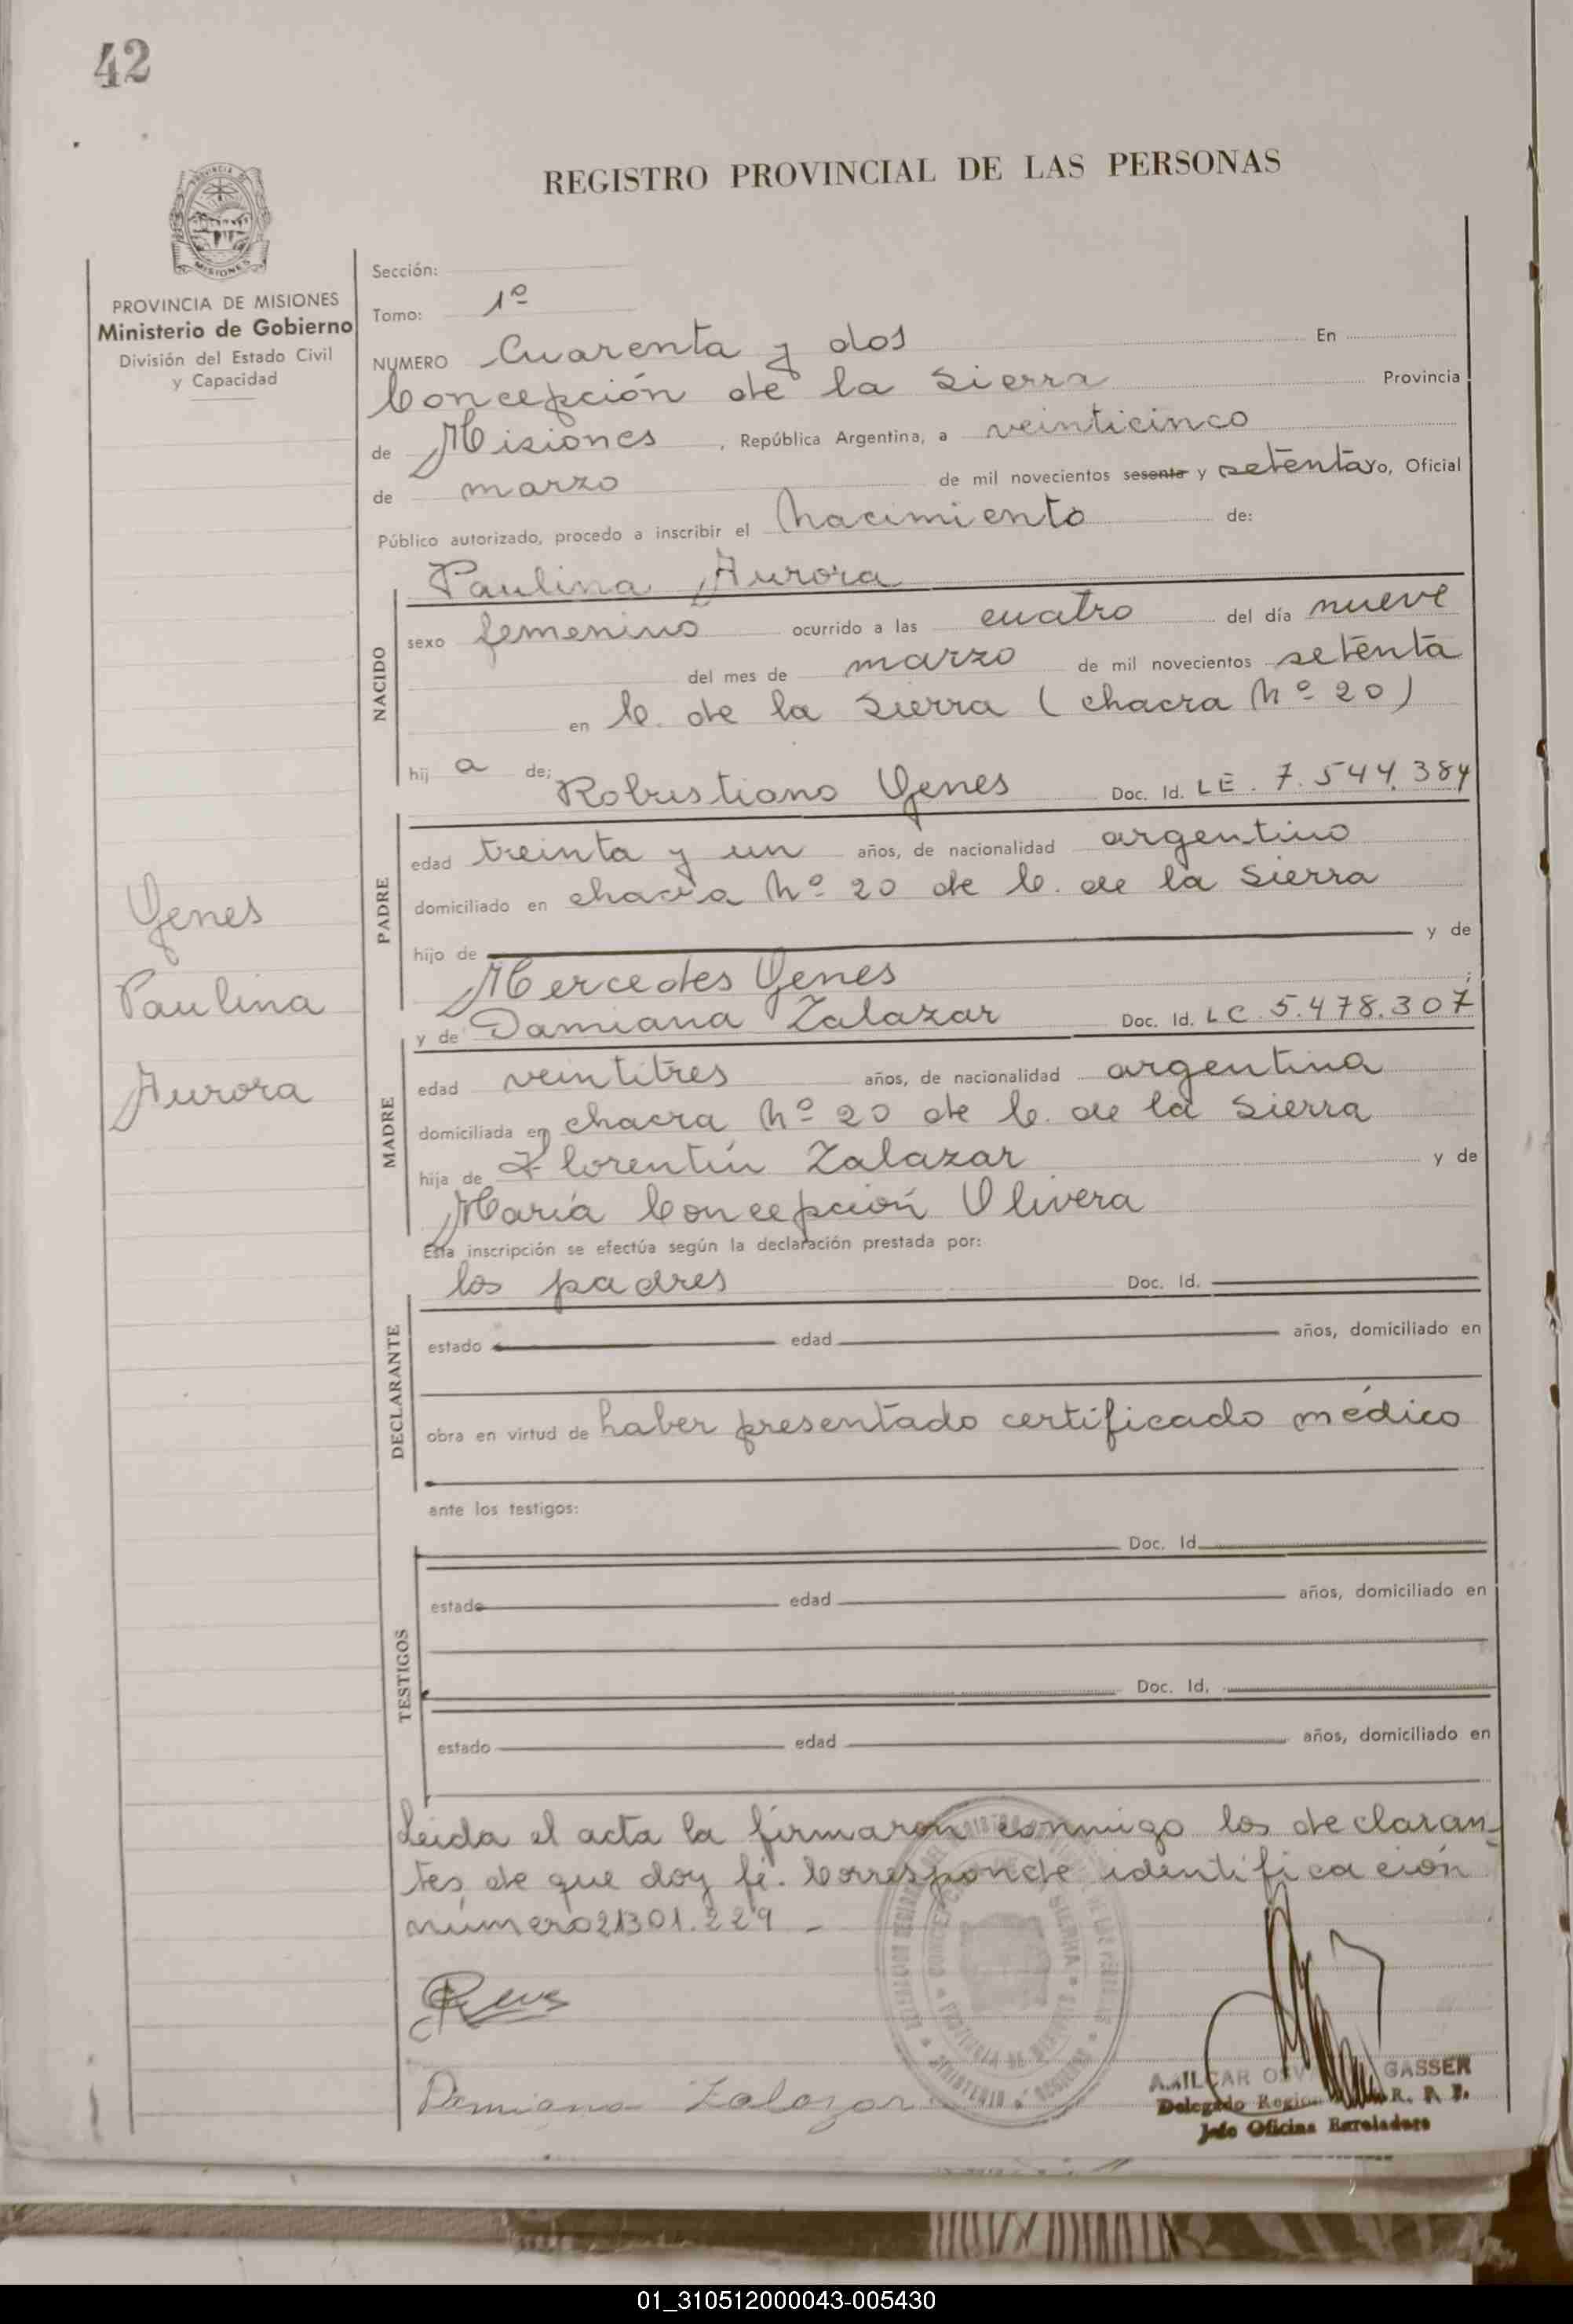 42
REGISTRO PROVINCIAL DE LAS PERSONAS
MISIONES
PROVINCIA DE MISIONES
Ministerio de Gobierno
División del Estado Civil
y Capacidad
Sección:
Tomo: 1º
NUMERO Cuarenta y dos En
Concepción de la Sierra Provincia
de Misiones, República Argentina, a veinticinco
de marzo de mil novecientos sesenta y setenta yo, Oficial
Público autorizado, procedo a inscribir el nacimiento de:
Paulina Aurora
NACIDO
sexo femenino ocurrido a las cuatro del día nueve
del mes de marzo de mil novecientos setenta
en C. de la Sierra (chacra Nº 20)
hij a de; Robustiano Yenes Doc. Id. LE. 7.544.384
PADRE
edad treinta y un años, de nacionalidad argentino
domiciliado en chacra Nº 20 de C. de la Sierra
hijo de y de
Mercedes Yenes ;
y de Damiana Zalazar Doc. Id. LC. 5.478.307
MADRE
edad veintitres años, de nacionalidad argentina
domiciliada en chacra Nº 20 de C. de la Sierra
hija de Florentín Zalazar y de
María Concepción Olivera
Esta inscripción se efectúa según la declaración prestada por:
los padres Doc. Id.
DECLARANTE
estado edad años, domiciliado en
obra en virtud de haber presentado certificado médico
ante los testigos:
TESTIGOS
Doc. Id.
estado edad años, domiciliado en
Doc. Id.
estado edad años, domiciliado en
Leida el acta la firmaron conmigo los declaran-
tes de que doy fé. Corresponde identificación
número 21301.229 -
Yenes
Paulina
Aurora
Damiana Zalazar
GASSER
Delegado R. P. P.
Jefe Oficina Enroladora
01_310512000043-005430